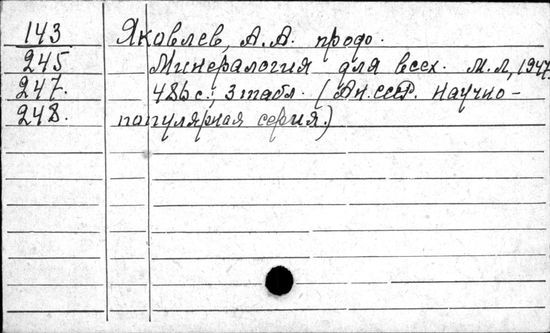 143 Яковлев, А.А. продо.
245 Минералогия для всех. М.Л, 1947.
247. 486 с., 3 табл. (Ан.СССР. Научно-
248. популярная серия.)